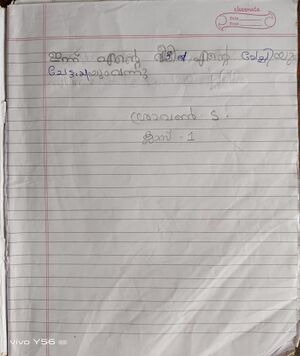 classmate
Date
Page
ഇന്ന് എന്റെ വീട്ടിൽ എന്റെ ചേച്ചിയും
ചേട്ടനും വന്നു
ശ്രാവൺ S.
ക്ലാസ് - 1
vivo Y56